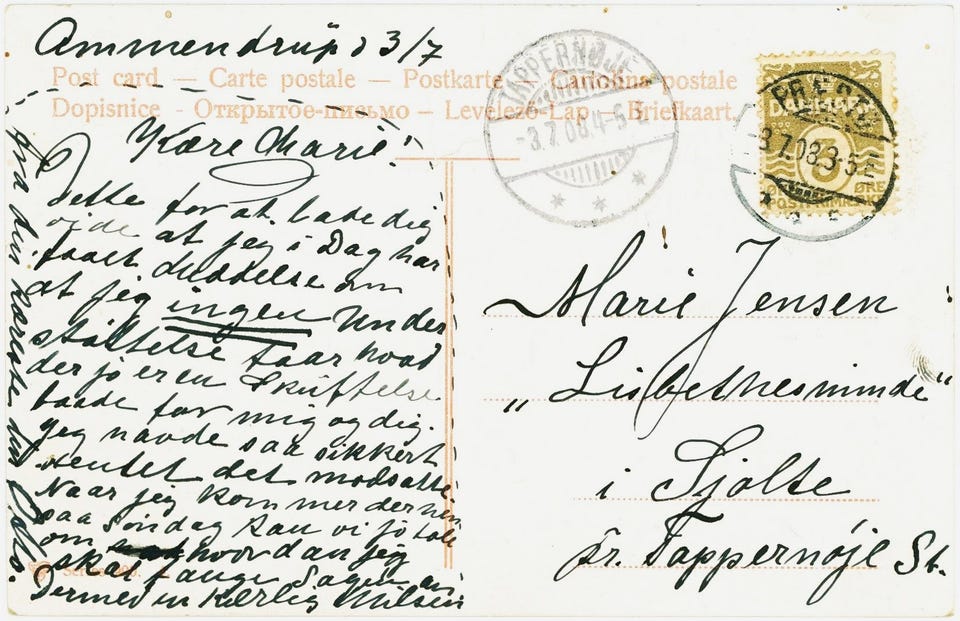 Ammendrup d 3/7
Post card — Carte postale — Postkarte — Cartolina postale
Dopisnice - Открытое-письмо — Levelező-Lap — Briefkaart.
TAPPERNØJE
3.7.08.4-5 E
PRÆSTØ
3.7.08.3-5 E
DANMARK
ØRE
POSTFRIMÆRKE
Kære Marie!
Dette for at lade dig
vide at jeg i Dag har
faaet Meddelelse om
at jeg ingen Under
støttelse faar hvad
der jo er en Skuffelse
baade for mig og dig.
jeg havde saa sikkert
ventet det modsatte
Naar jeg kommer derhen
saa Søndag kan vi jo tale
om hvordan jeg
skal fange Sagen an
Dermed en Kærlig Hilsen
fra din
Marie Jensen
„Lisbethesminde“
i Sjolte
pr. Tappernøje St.